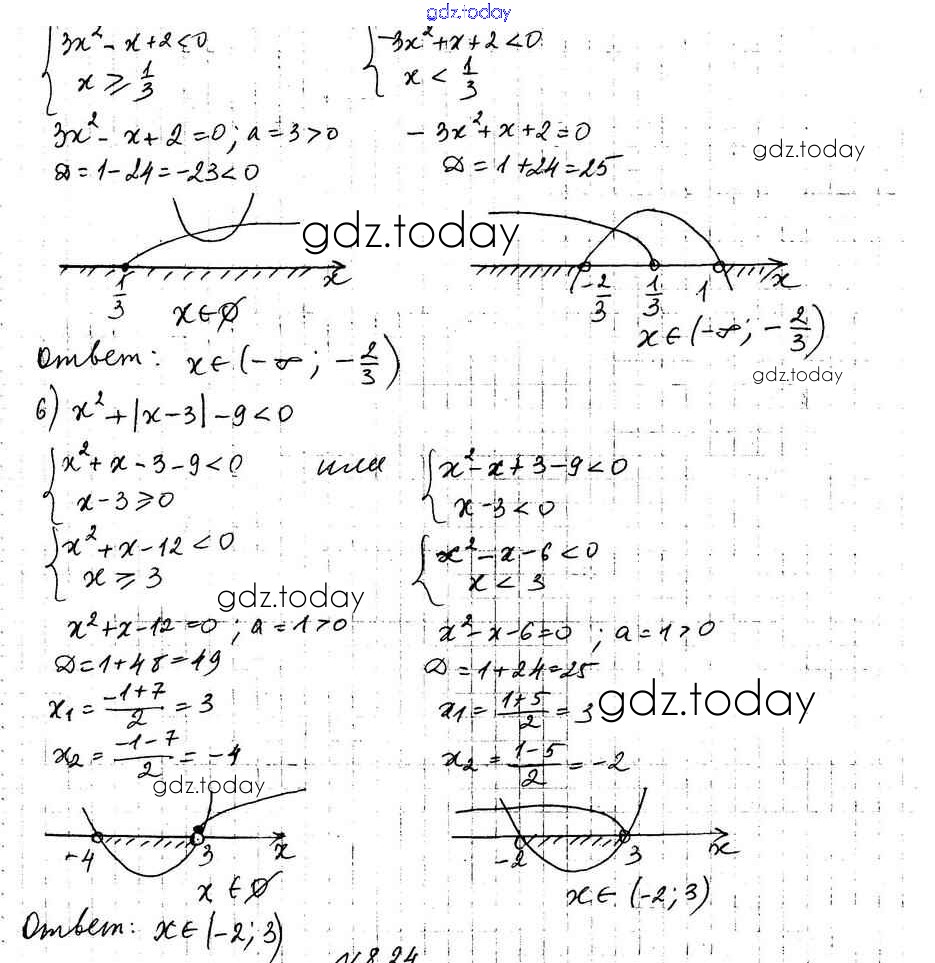 gdz.today
3x² - x + 2 < 0
x ≥ 1/3
-3x² + x + 2 < 0
x < 1/3
3x² - x + 2 = 0; a = 3 > 0
D = 1 - 24 = -23 < 0
-3x² + x + 2 = 0
D = 1 + 24 = 25
gdz.today
gdz.today
1/3 x
x ∈ ∅
-2/3 1/3 1 x
x ∈ (-∞; -2/3)
Ответ: x ∈ (-∞; -2/3)
gdz.today
б) x² + |x - 3| - 9 < 0
x² + x - 3 - 9 < 0
x - 3 ≥ 0
или
x² - x + 3 - 9 < 0
x - 3 < 0
x² + x - 12 < 0
x ≥ 3
x² - x - 6 < 0
x < 3
gdz.today
x² + x - 12 = 0; a = 1 > 0
D = 1 + 48 = 49
x₁ = (-1+7)/2 = 3
x₂ = (-1-7)/2 = -4
x² - x - 6 = 0; a = 1 > 0
D = 1 + 24 = 25
x₁ = (1+5)/2 = 3
x₂ = (1-5)/2 = -2
gdz.today
gdz.today
-4 3 x
x ∈ ∅
-2 3 x
x ∈ (-2; 3)
Ответ: x ∈ (-2; 3)